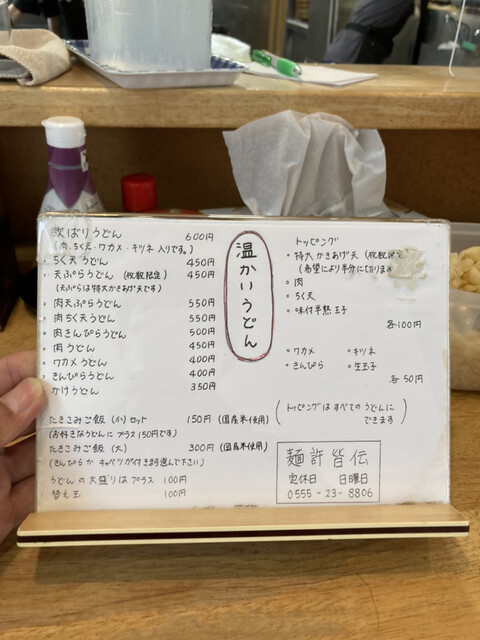 欲ばりうどん 600円
(肉・ちく天・ワカメ・キツネ 入りです。)
・ちく天うどん 450円
・天ぷらうどん (枚数限定) 450円
(天ぷらは特大かきあげ天です)
・肉天ぷらうどん 550円
・肉ちく天うどん 550円
・肉きんぴらうどん 500円
・肉うどん 450円
・ワカメうどん 400円
・きんぴらうどん 400円
かけうどん 350円
たきこみご飯 (小) セット 150円 (国産米使用)
(お好きなうどんに プラス 150円です)
たきこみご飯 (大) 300円 (国産米使用)
(きんぴらか キャベツが付きます選んで下さい)
うどんの大盛りはプラス 100円
・替え玉 100円
温かいうどん
トッピング
・特大かきあげ天 (枚数限
(希望により半分に切りま
・肉
・ちく天
・味付半熟玉子
各100円
・ワカメ ・キツネ
・きんぴら ・生玉子
各50円
(トッピングはすべてのうどんに
できます)
麺許皆伝
定休日 日曜日
0555-23-8806